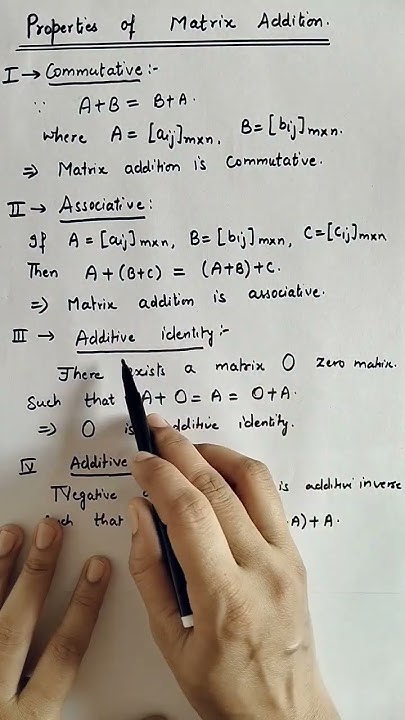 Properties of Matrix Addition.
I → Commutative :-
∵ A+B = B+A.
where A = [aij]m×n, B = [bij]m×n.
⇒ Matrix addition is Commutative.
II → Associative :
If A = [aij]m×n, B = [bij]m×n, C = [cij]m×n
Then A + (B+C) = (A+B) + C.
⇒ Matrix addition is associative.
III → Additive identity :-
There exists a matrix O zero matrix.
Such that A + O = A = O + A.
⇒ O is additive identity.
IV Additive
Negative is additive inverse
that A) + A.